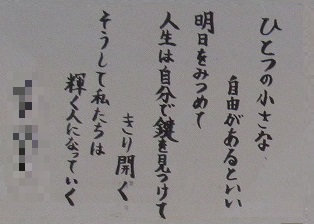 ひとつの小さな
自由があるといい
明日をみつめて
人生は自分で鍵を見つけて
きり開く
そうして私たちは
輝く人になっていく